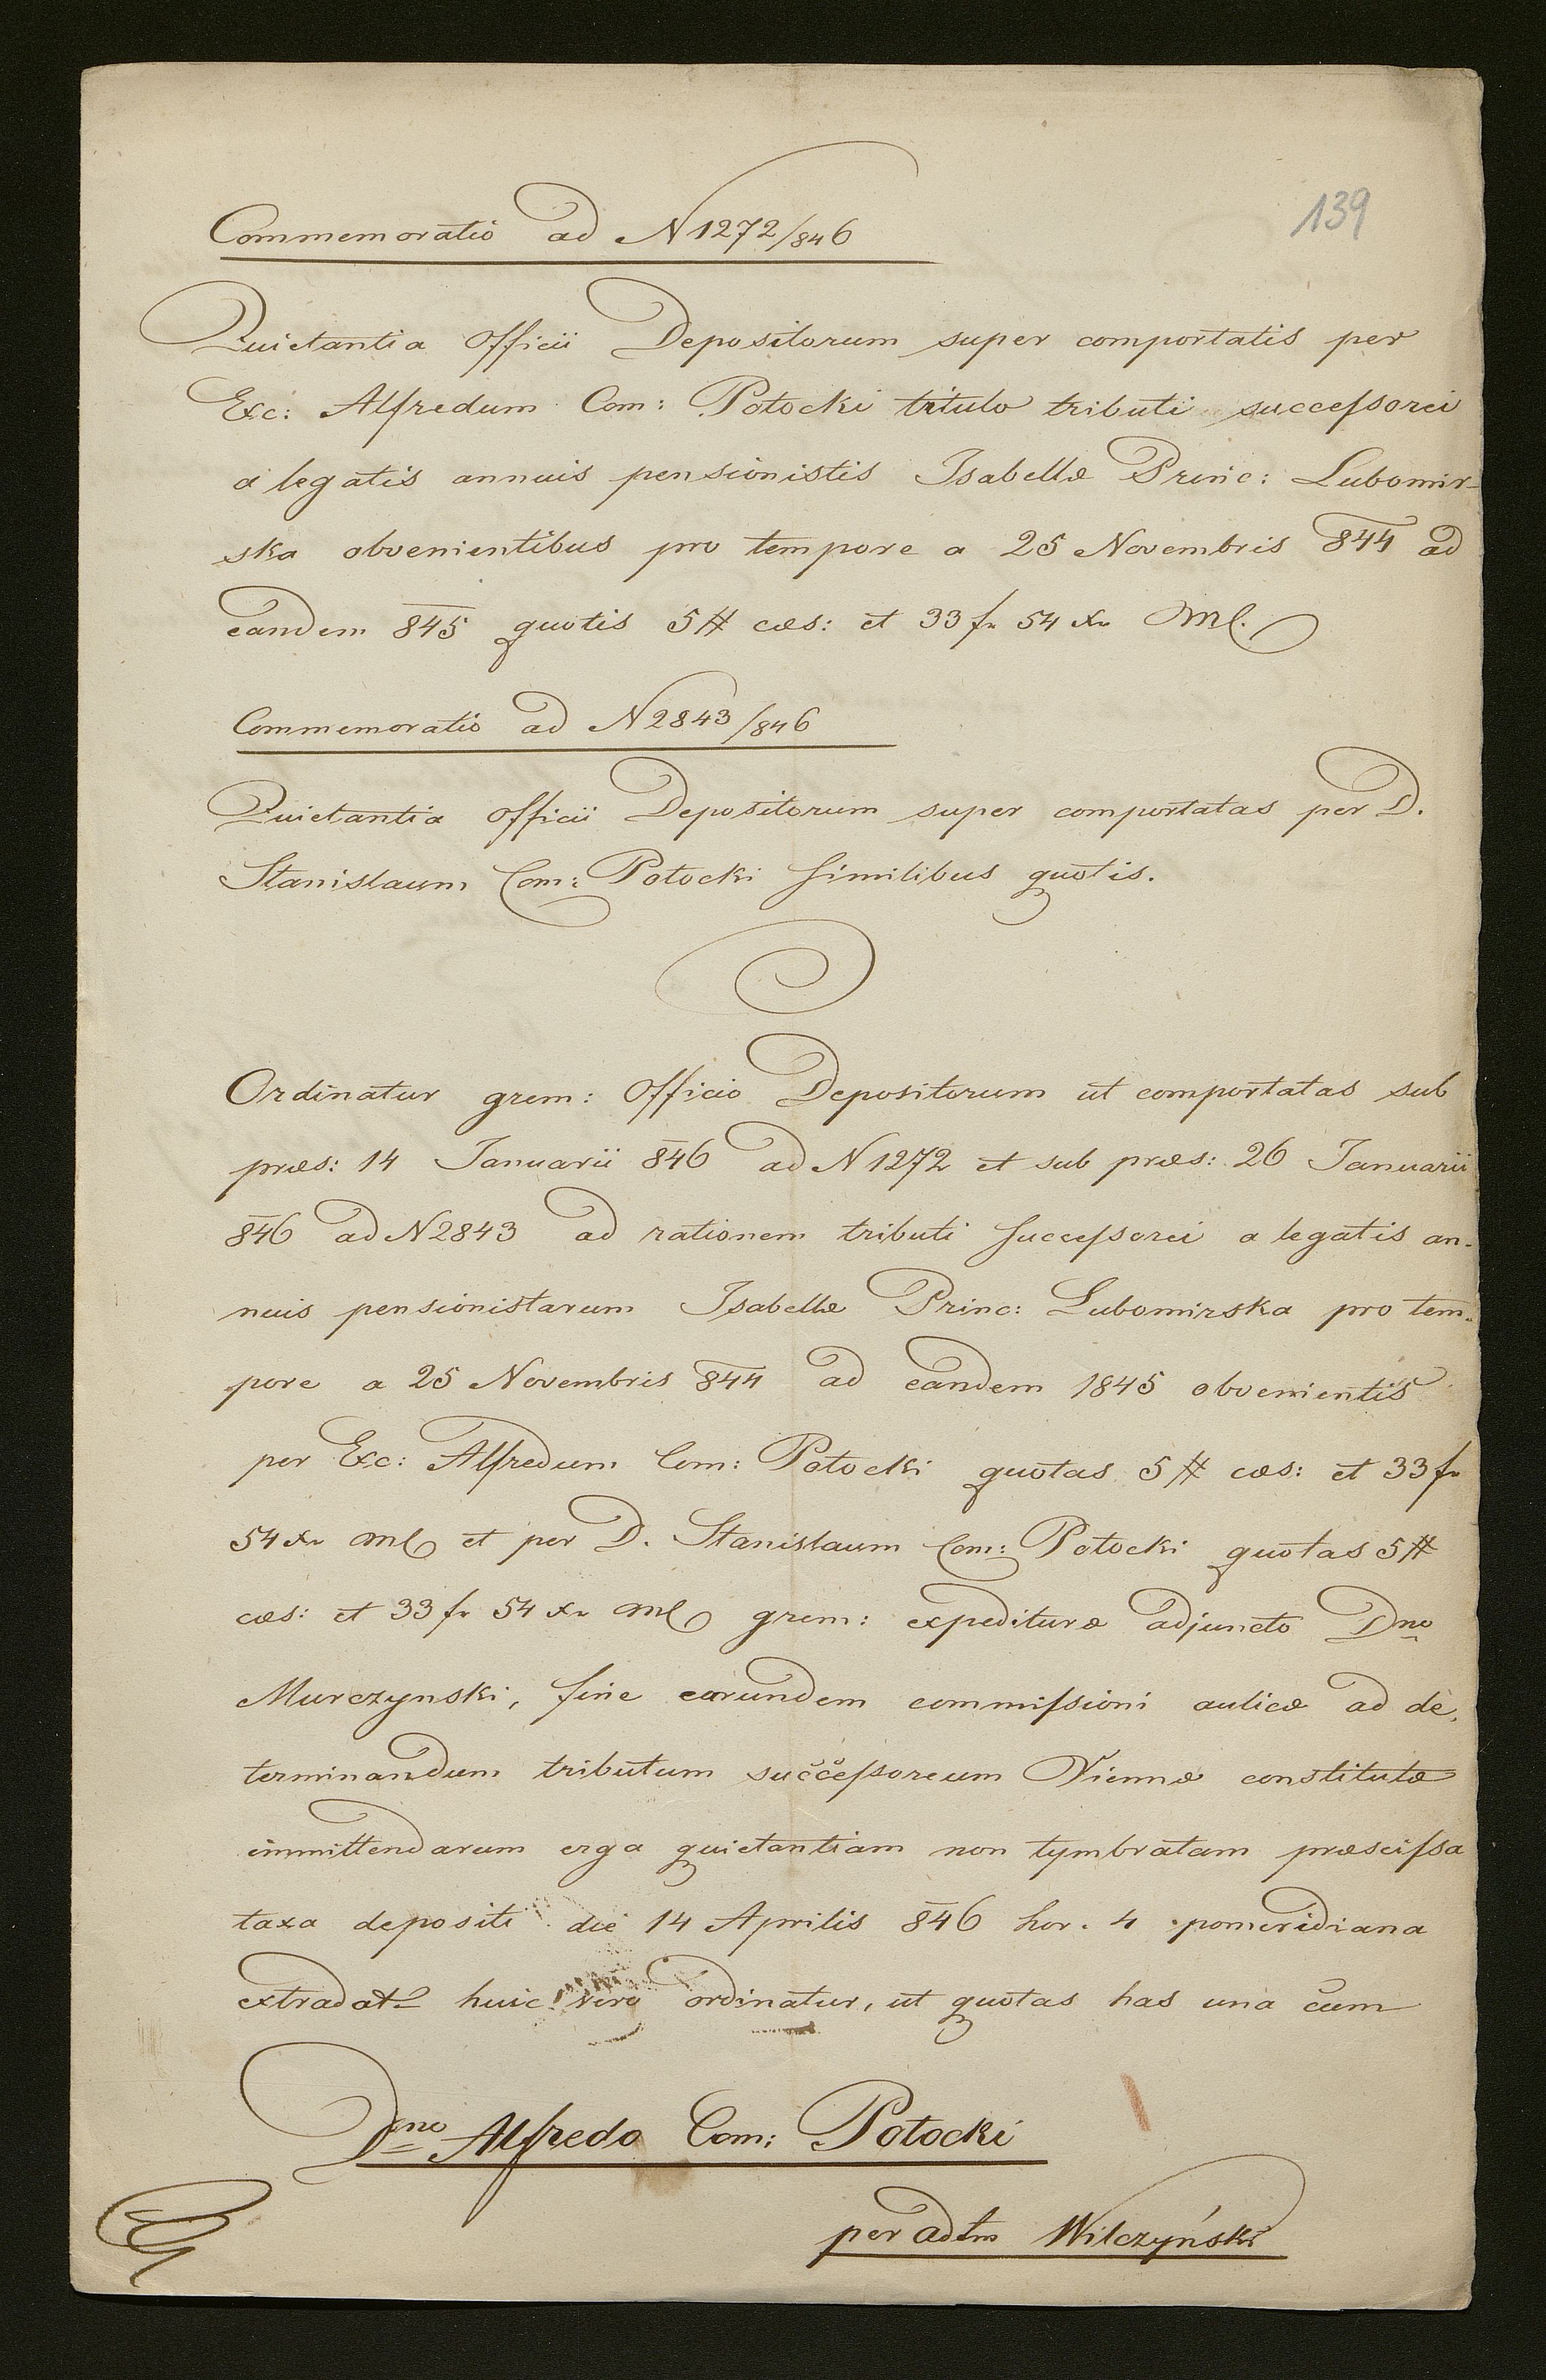 139
Commemoratio ad N 1272/846
Quietantia Officii Depositorum super comportatis per
Exc: Alfredum Com: Potocki titulo tributi successorei
a legatis annuis pensionistis Isabellæ Princ: Lubomir-
ska obvenientibus pro tempore a 25 Novembris 844 ad
eandem 845 quotis 5 # cæs: et 33 fr 54 xr
Commemoratio ad N 2843/846
Quietantia Officii Depositorum super comportatas per D.
Stanislaum Com: Potocki similibus quotis.
Ordinatur grem: Officio Depositorum ut comportatas sub
præs: 14 Januarii 846 ad N 1272 et sub præs: 26 Januarii
846 ad N 2843 ad rationem tributi successorei a legatis an-
nuis pensionistarum Isabellæ Princ: Lubomirska pro tem-
pore a 25 Novembris 844 ad eandem 1845 obvenientis
per Exc: Alfredum Com: Potocki quotas 5 # cæs: et 33 fr
54 xr et per D. Stanislaum Com: Potocki quotas 5 #
cæs: et 33 fr 54 xr grem: expedituræ adjuncto Dno
Murczynski, fine earundem commissioni aulicæ ad de-
terminandum tributum successoreum Viennæ constitutæ
immittendarum erga quietantiam non tymbratam præscissa
taxa depositi die 14 Aprilis 846 hor. 4 pomeridiana
extradat huic vero ordinatur, ut quotas has una cum
Dno Alfredo Com: Potocki
per Wilczyński